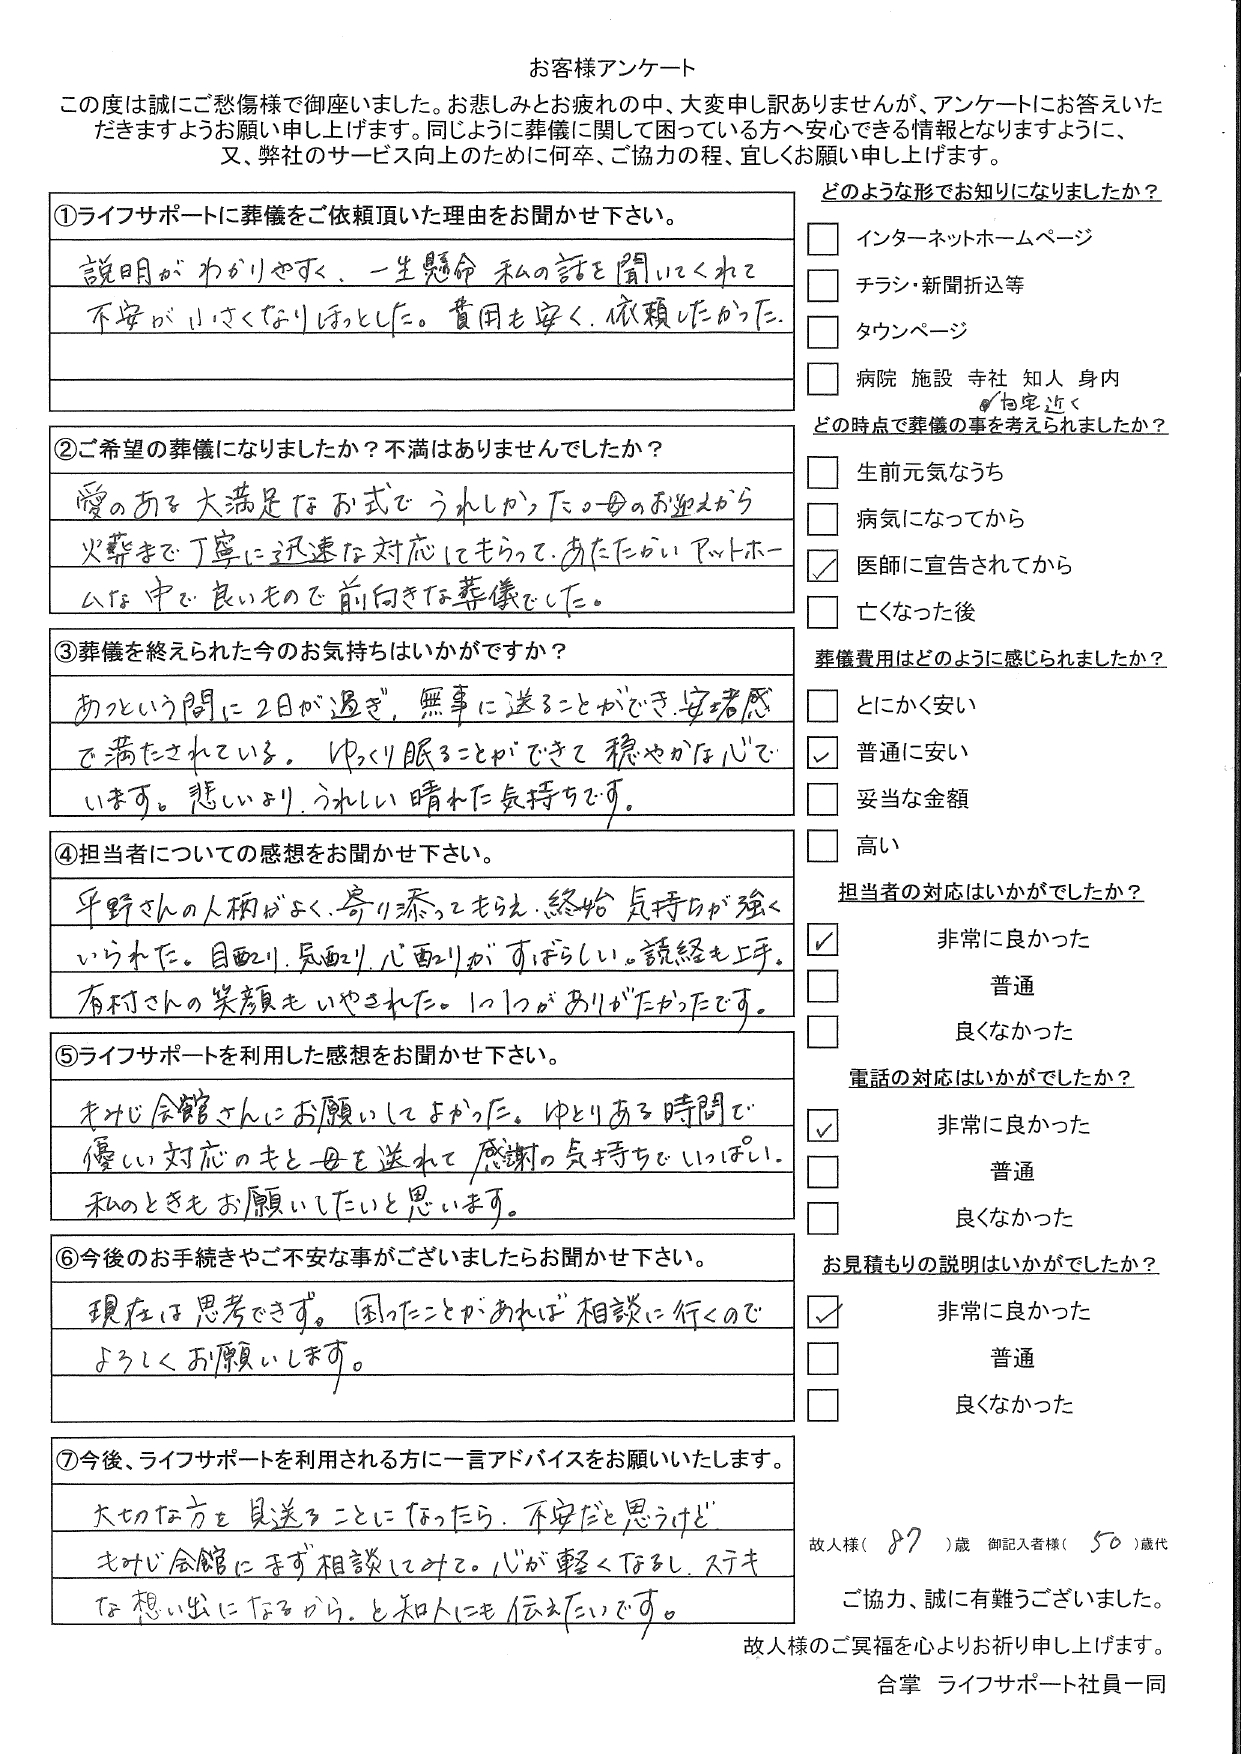 お客様アンケート
この度は誠にご愁傷様で御座いました。お悲しみとお疲れの中、大変申し訳ありませんが、アンケートにお答えいた
だきますようお願い申し上げます。同じように葬儀に関して困っている方へ安心できる情報となりますように、
又、弊社のサービス向上のために何卒、ご協力の程、宜しくお願い申し上げます。
①ライフサポートに葬儀をご依頼頂いた理由をお聞かせ下さい。
説明がわかりやすく、一生懸命 私の話を聞いてくれて
不安が小さくなりほっとした。費用も安く、依頼したかった。
②ご希望の葬儀になりましたか？不満はありませんでしたか？
愛のある大満足なお式でうれしかった。母のお迎えから
火葬まで丁寧に迅速な対応してもらって、あたたかいアットホー
ムな中で良いもので前向きな葬儀でした。
③葬儀を終えられた今のお気持ちはいかがですか？
あっという間に2日が過ぎ、無事に送ることができ、安堵感
で満たされている。ゆっくり眠ることができて穏やかな心で
います。悲しいより、うれしい晴れた気持ちです。
④担当者についての感想をお聞かせ下さい。
平野さんの人柄がよく、寄り添ってもらえ、終始気持ちが強く
いられた。目配り、気配り、心配りがすばらしい。読経も上手。
有村さんの笑顔もいやされた。1つ1つがありがたかったです。
⑤ライフサポートを利用した感想をお聞かせ下さい。
もみじ会館さんにお願いしてよかった。ゆとりある時間で
優しい対応のもと母を送れて感謝の気持ちでいっぱい。
私のときもお願いしたいと思います。
⑥今後のお手続きやご不安な事がございましたらお聞かせ下さい。
現在は思考できず。困ったことがあれば相談に行くので
よろしくお願いします。
⑦今後、ライフサポートを利用される方に一言アドバイスをお願いいたします。
大切な方を見送ることになったら、不安だと思うけど
もみじ会館にまず相談してみて。心が軽くなるし、ステキ
な想い出になるから。と知人にも伝えたいです。
どのような形でお知りになりましたか？
インターネットホームページ
チラシ・新聞折込等
タウンページ
病院 施設 寺社 知人 身内
✓自宅近く
どの時点で葬儀の事を考えられましたか？
生前元気なうち
病気になってから
✓ 医師に宣告されてから
亡くなった後
葬儀費用はどのように感じられましたか？
とにかく安い
✓ 普通に安い
妥当な金額
高い
担当者の対応はいかがでしたか？
✓ 非常に良かった
普通
良くなかった
電話の対応はいかがでしたか？
✓ 非常に良かった
普通
良くなかった
お見積もりの説明はいかがでしたか？
✓ 非常に良かった
普通
良くなかった
故人様（ 87 ）歳 御記入者様（ 50 ）歳代
ご協力、誠に有難うございました。
故人様のご冥福を心よりお祈り申し上げます。
合掌 ライフサポート社員一同